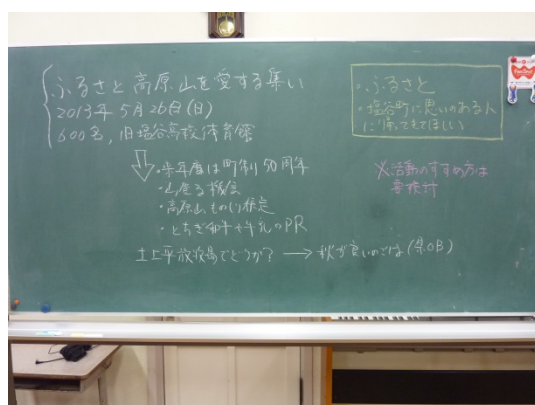 ふるさと高原山を愛する集い
2013年5月26日(日)
600名,旧塩谷高校体育館
・来年度は町制50周年
・山座る機会
・高原山ものしり検定
・とちぎ和牛や牛乳のPR
土上平放牧場でどうか? → 秋が良いのでは(集OB)
・ふるさと
・塩谷町に思いのある人
に帰ってきてほしい
※活動のすすめ方は
要検討